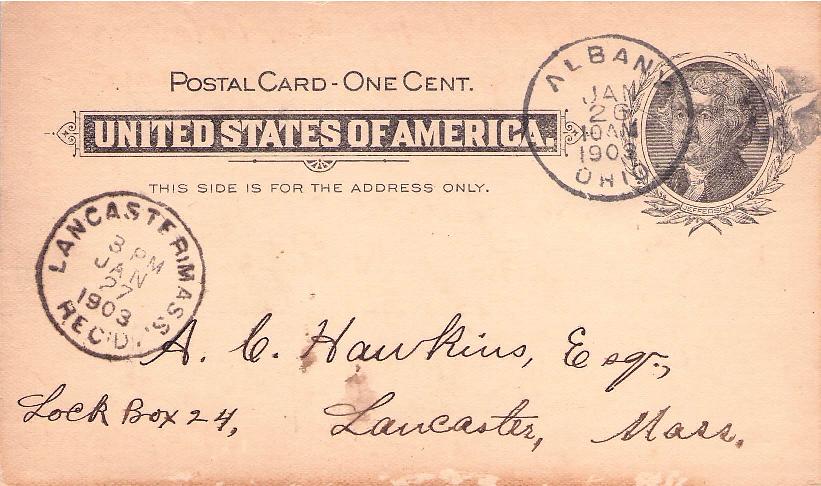 POSTAL CARD - ONE CENT.
UNITED STATES OF AMERICA.
THIS SIDE IS FOR THE ADDRESS ONLY.
ALBANY
JAN
26
10 AM
1903
OHIO
JEFFERSON
LANCASTER, MASS.
3 PM
JAN
27
1903
REC'D.
A. C. Hawkins, Esq.,
Lock Box 24,
Lancaster, Mass.